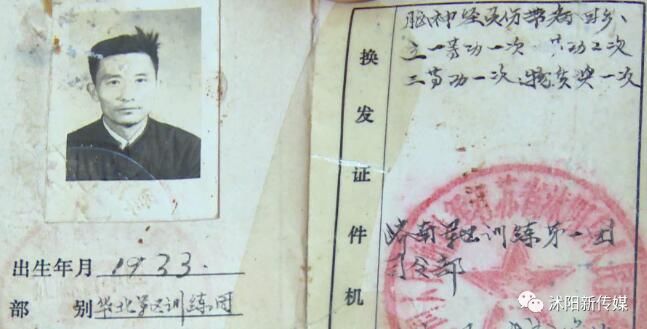 出生年月 1933.
部 别 华北军区训练团
脑神经受伤带病回乡、
立一等功一次
二等功一次、物资奖一次
换发证件机
训练第一团
司令部
沭阳新传媒